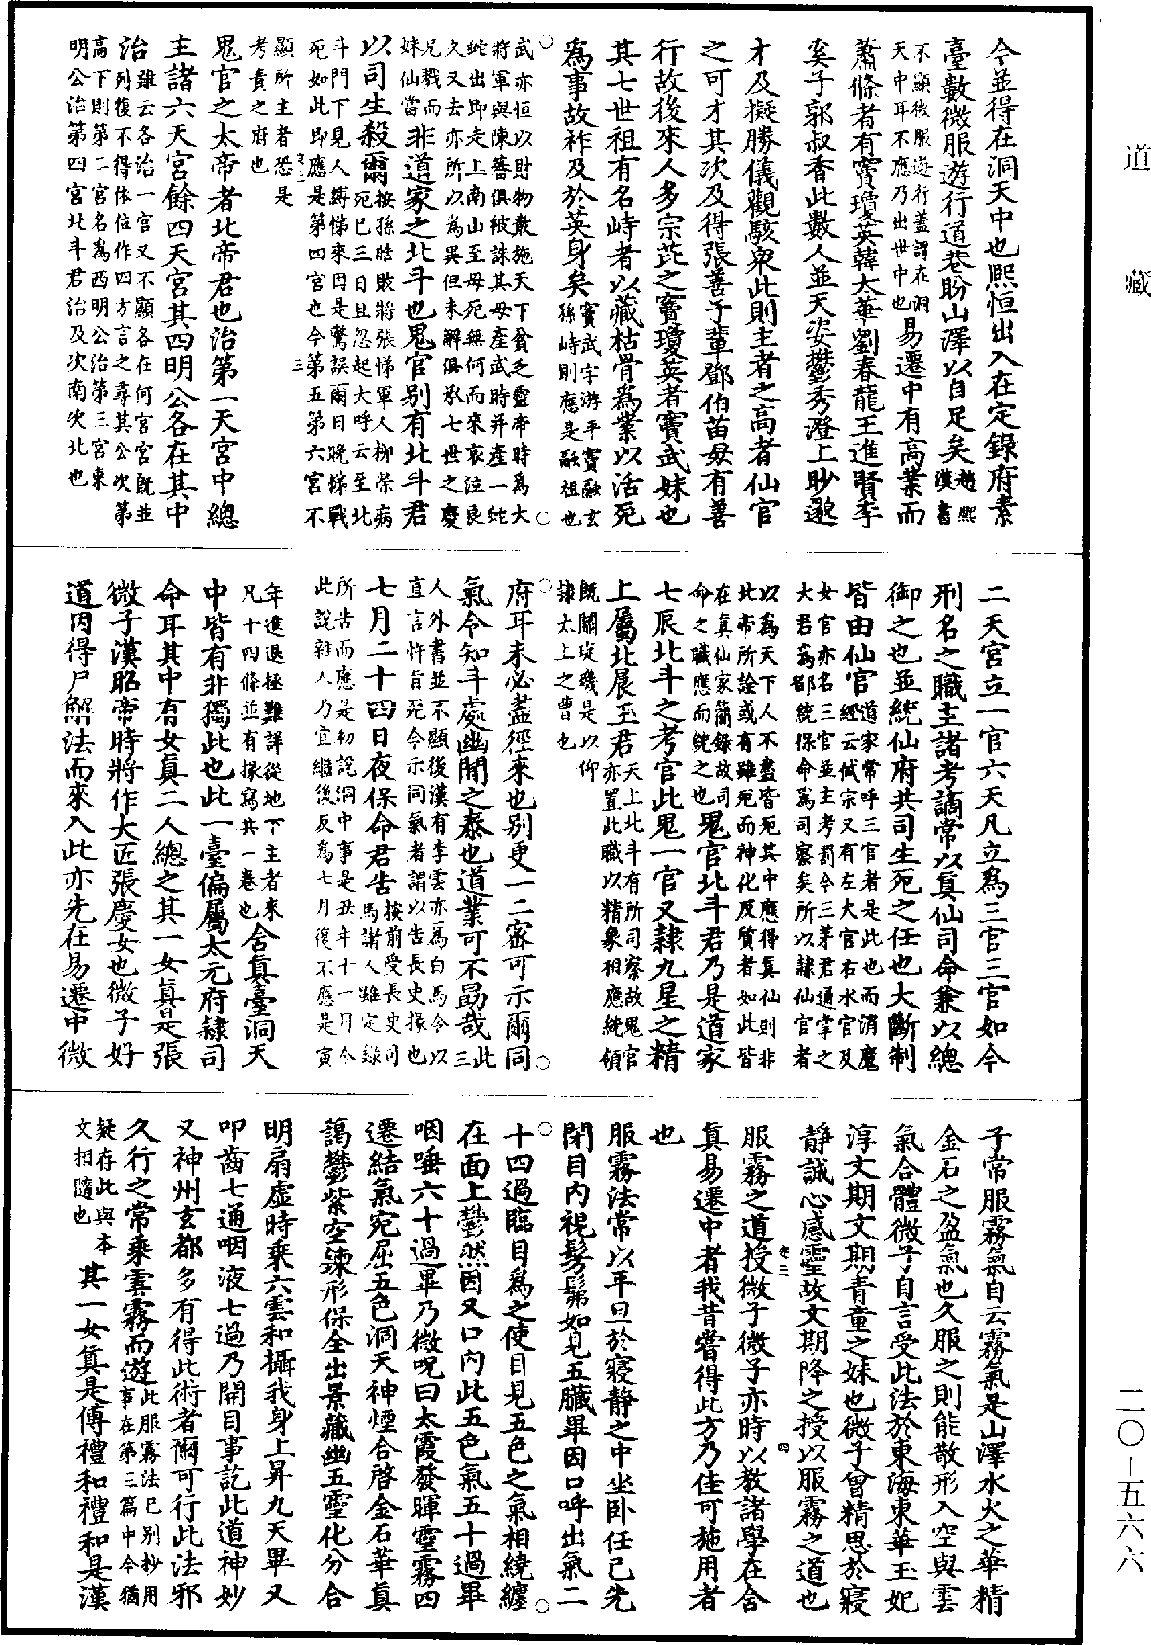 道藏
今並得在洞天中也熙恒出入在定錄府素
臺數微服遊行道巷盼山澤以自足矣趙熙漢書
不顯後服遊行蓋謂在洞天中耳不應乃出世中也易遷中有高業而
蕭條者有竇瓊英韓太華劉春龍王進賢李
奚子郭叔香此數人並天姿鬱秀澄上眇邈
才及擬勝儀觀駭衆此則主者之高者仙官
之可才其次及得張善子輩鄧伯苗母有善
行故後來人多宗芘之竇瓊英者竇武妹也
其七世祖有名峙者以藏枯骨為業以活死
為事故祚及於英身矣竇武字游平竇融玄孫峙則應是融祖也
武亦恒以財物散施天下貧乏靈帝時為大將軍與陳蕃俱被誅其母產武時并產一蛇
蛇出即走上南山至母死無何而來哀泣良久又去亦所以為異但未解俱承七世之慶
兄戮而妹仙當非道家之北斗也鬼官别有北斗君
以司生殺爾按孫晧敗將張悌軍人柳榮病死已三日且忽起大呼云至北
斗門下見人縛悌來因是驚誤爾日晚悌戰死如此即應是第四宮也今第五第六宮不
顯所主者恐是考責之府也
鬼官之太帝者北帝君也治第一天宮中總
主諸六天宮餘四天宮其四明公各在其中
治雖云各治一宮又不顯各在何宮宮既並列復不得依位作四方言之尋其公次第
高下則第二宮名為西明公治第三宮東明公治第四宮北斗君治及次南次北也
二天宮立一官六天凡立為三官三官如今
刑名之職主諸考謫常以真仙司命兼以總
御之也並統仙府共司生死之任也大斷制
皆由仙官道家常呼三官者是此也而消魔經云忮宗又有左大官右水官及
女官亦名三官並主考罰今三茅君通掌之大君為都統保命為司察矣所以隸仙官者
以為天下人不盡皆死其中應得真仙則非北帝所詮或有雖死而神化反質者如此皆
在真仙家簡錄故司命之職應而統之也鬼官北斗君乃是道家
七辰北斗之考官此鬼一官又隸九星之精
上屬北晨玉君天上北斗有所司察故鬼官亦置此職以精象相應統領
既關璇璣是以仰隸太上之曹也
府耳未必盡徑來也别更一二密可示爾同
氣令知斗處幽閒之泰也道業可不勗哉此三
人外書並不顯後漢有李雲亦為白馬令以直言忤旨死今示同氣者謂以告長史掾也
七月二十四日夜保命君告按前受長史司馬諸人雖定錄
所告而應是初説洞中事是丑年十一月今此説雜人乃宜繼後反為七月復不應是寅
年進退極難詳從地下主者來凡十四條並有掾寫共一卷也含真臺洞天
中皆有非獨此也此一臺偏屬太元府隸司
命耳其中有女真二人總之其一女真是張
微子漢昭帝時將作大匠張慶女也微子好
道因得尸解法而來入此亦先在易遷中微
子常服霧氣自云霧氣是山澤水火之華精
金石之盈氣也久服之則能散形入空與雲
氣合體微子自言受此法於東海東華玉妃
淳文期文期青童之妹也微子曾精思於寢
靜誠心感靈故文期降之授以服霧之道也
服霧之道授微子微子亦時以教諸學在含
真易遷中者我昔嘗得此方乃佳可施用者
也
服霧法常以平旦於寢靜之中坐卧任己先
閉目內視髣髴如見五臟畢因口呼出氣二
十四過臨目為之使目見五色之氣相繞纏
在面上鬱然因又口內此五色氣五十過畢
咽唾六十過畢乃微呪曰太霞發暉靈霧四
遷結氣宛屈五色洞天神煙合啓金石華真
藹鬱紫空鍊形保全出景藏幽五靈化分合
明扇虛時乘六雲和攝我身上昇九天畢又
叩齒七通咽液七過乃開目事訖此道神妙
又神州玄都多有得此術者爾可行此法邪
久行之常乘雲霧而遊此服霧法已别抄用事在第三篇中今猶
疑存此與本文相隨也其一女真是傅禮和禮和是漢
二〇-五六六